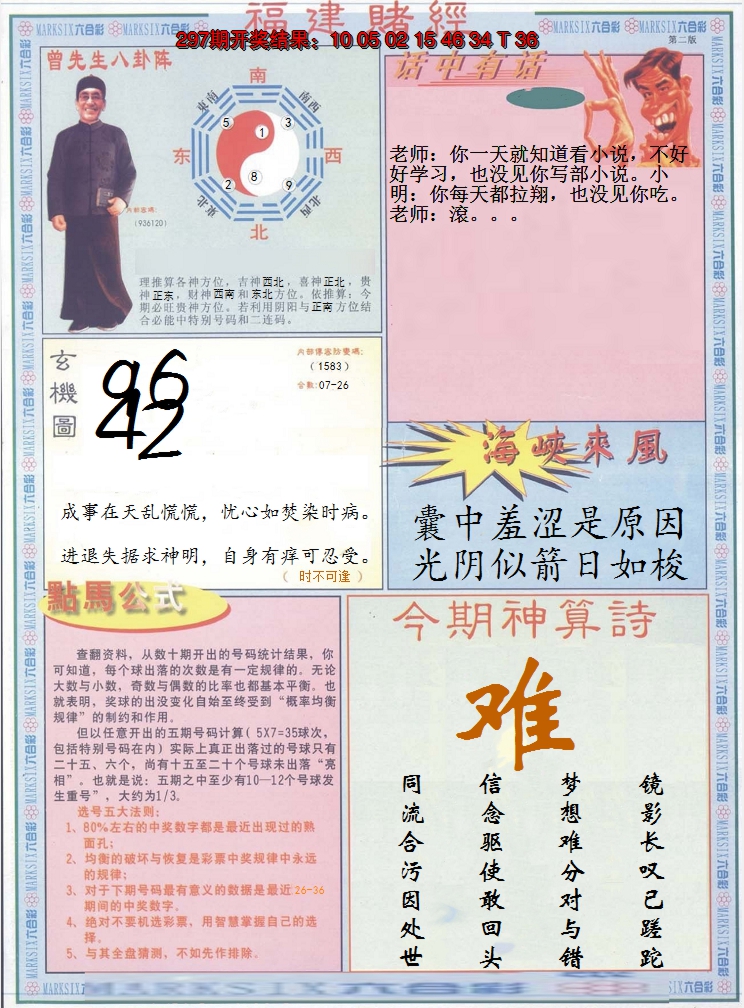 福建賭經
297期开奖结果：10 05 02 15 46 34 T 36
MARKSIX六合彩
第二版
曾先生八卦阵
南
东南
南西
5
1
3
东
西
2
8
9
東北
北西
北
内部密碼：
(936120)
理推算各神方位，吉神西北，喜神正北，贵
神正东，财神西南和东北方位。依推算：今
期必旺贵神方位。若利用阴阳与正南方位结
合必能中特别号码和二连码。
话中有话
老师：你一天就知道看小说，不好
好学习，也没见你写部小说。小
明：你每天都拉翔，也没见你吃。
老师：滚。。。
玄機圖
96
42
（1583）
合数:07-26
成事在天乱慌慌，忧心如焚染时病。
进退失据求神明，自身有痒可忍受。
（ 时不可逢 ）
海峽來風
囊中羞涩是原因
光阴似箭日如梭
點馬公式
查翻资料，从数十期开出的号码统计结果，你
可知道，每个球出落的次数是有一定规律的。无论
大数与小数，奇数与偶数的比率也都基本平衡。也
就表明，奖球的出没变化自始至终受到“概率均衡
规律”的制约和作用。
但以任意开出的五期号码计算( 5X7=35球次，
包括特别号码在内) 实际上真正出落过的号球只有
二十五、六个，尚有十五至二十个号球未出落“亮
相”。也就是说：五期之中至少有10—12个号球发
生重号”，大约为1/3。
选号五大法则：
1、80%左右的中奖数字都是最近出现过的熟
面孔；
2、均衡的破坏与恢复是彩票中奖规律中永远
的规律；
3、对于下期号码最有意义的数据是最近26-36
期间的中奖数字。
4、绝对不要机选彩票，用智慧掌握自己的选
择。
5、与其全盘猜测，不如先作排除。
今期神算詩
难
镜影长叹已蹉跎
梦想难分对与错
信念驱使敢回头
同流合污因处世